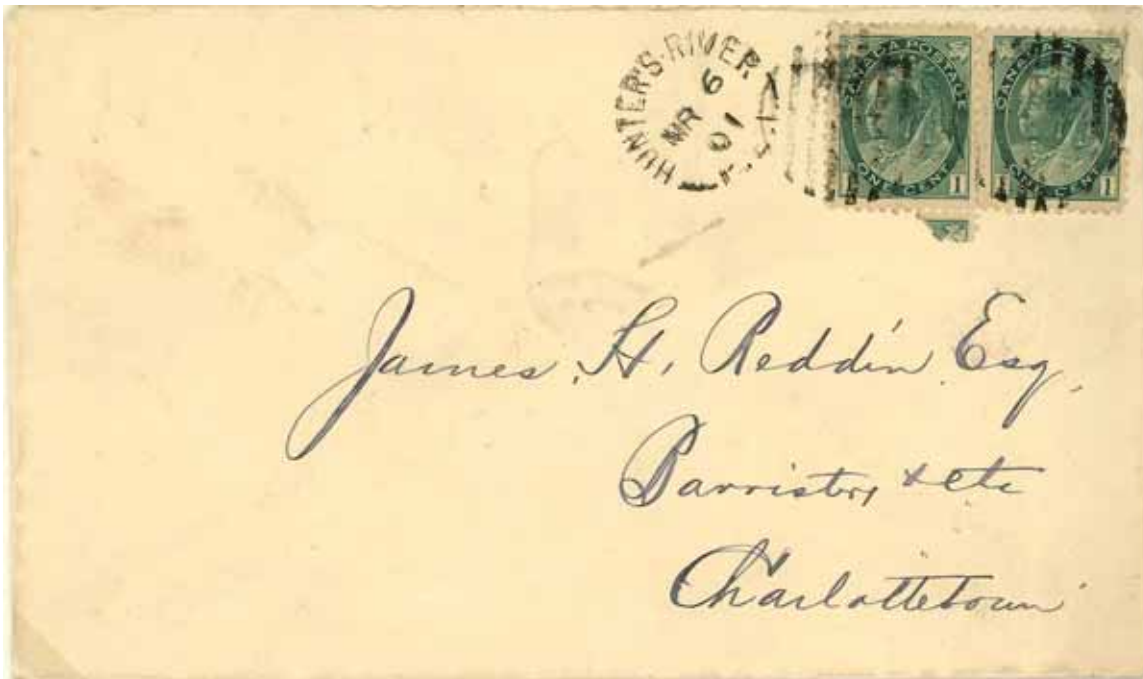 HUNTER'S·RIVER
6
MR
01
CANADA POSTAGE
ONE CENT
1
CANADA PO
ONE CENT
1 1
James. H. Reddin Esq,
Barrister, & etc
Charlottetown